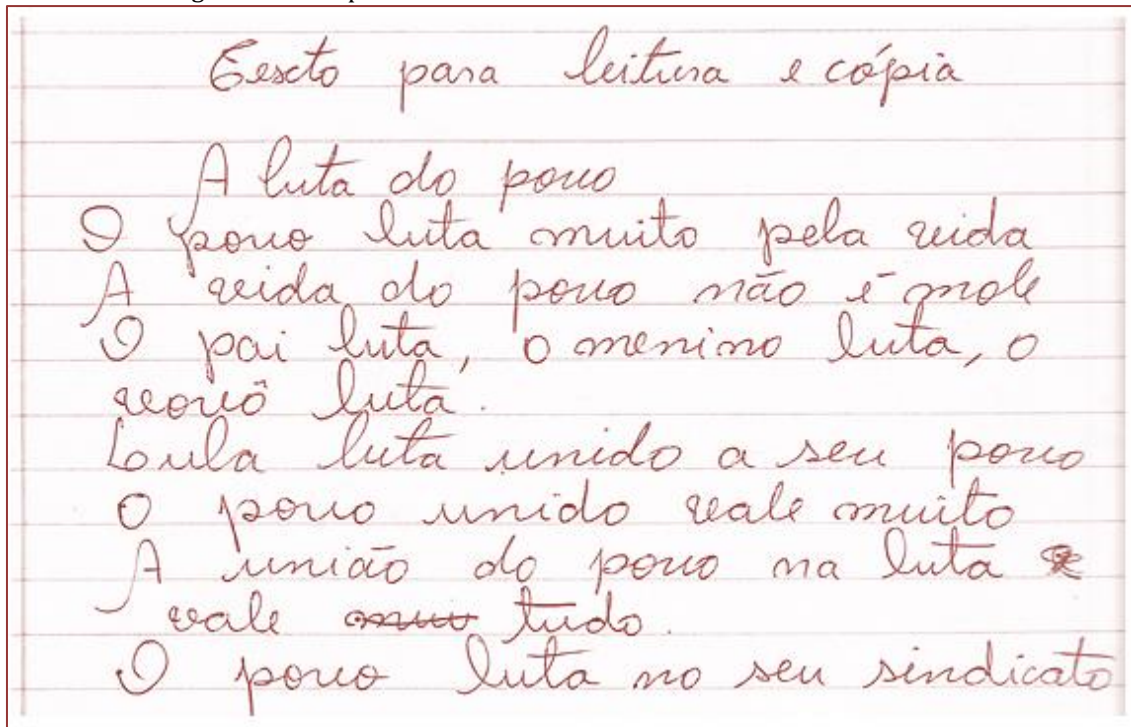 Texto para leitura e cópia
A luta do povo
O povo luta muito pela vida
A vida do povo não é mole
O pai luta, o menino luta, o
vovô luta.
Lula luta unido a seu povo
O povo unido vale muito
A união do povo na luta
vale tudo.
O povo luta no seu sindicato